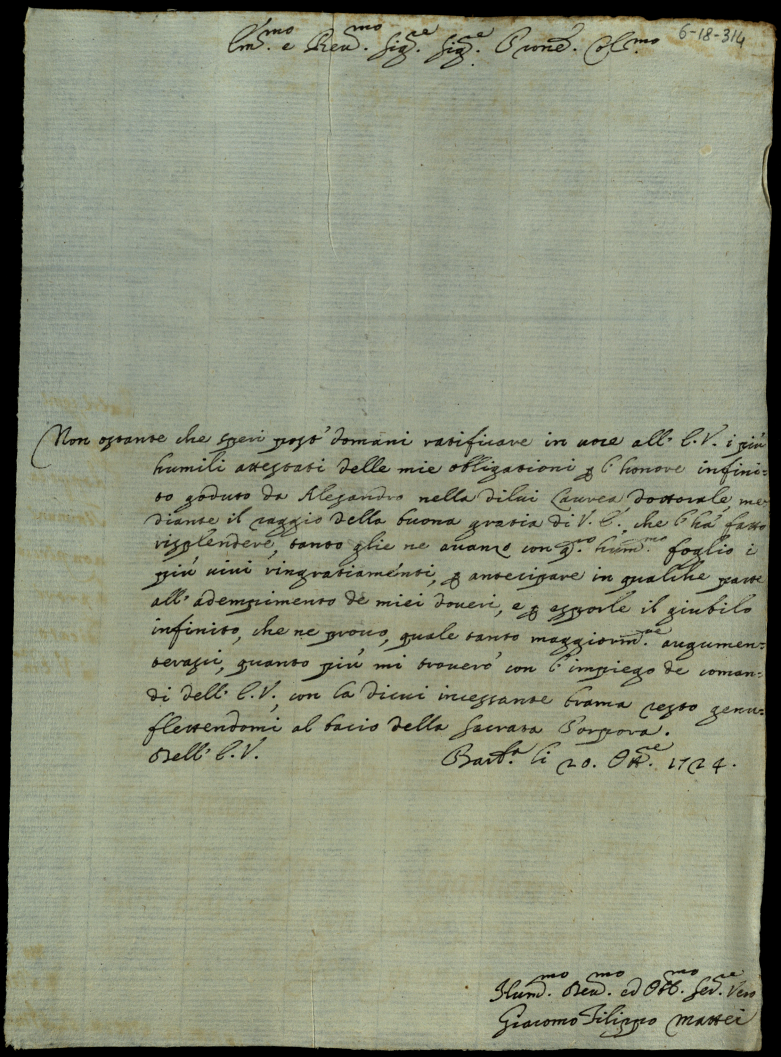 6-18-314
Em.mo e Reu.mo Sig.re Sig.re P.rone Col.mo
Non ostante che speri post' domani ratificare in uoce all' E.V. i più
humili attestati delle mie obligationi p l' honore infini-
to goduto da Alesandro nella dilui Laurea dottorale me-
diante il raggio della buona gratia di V. E., che l' ha' fatto
risplendere, tanto glie ne auanzo con q.to hum.mo foglio i
più uiui ringratiamenti, p antecipare in qualche parte
all' adempimento de miei doueri, e p esporle il giubilo
infinito, che ne prouo, quale tanto maggiorm.te augumen-
terassi, quanto più mi trouerò con l' impiego de coman-
di dell' E.V., con la dicui incessante brama resto genu-
flettendomi al bacio della Sacrata Porpora.
Dell' E.V. Barb.ra li 20. Ott.re 1724.
Hum.mo Deu.mo ed Obb.mo Ser.re Vero
Giacomo Filippo Mattei